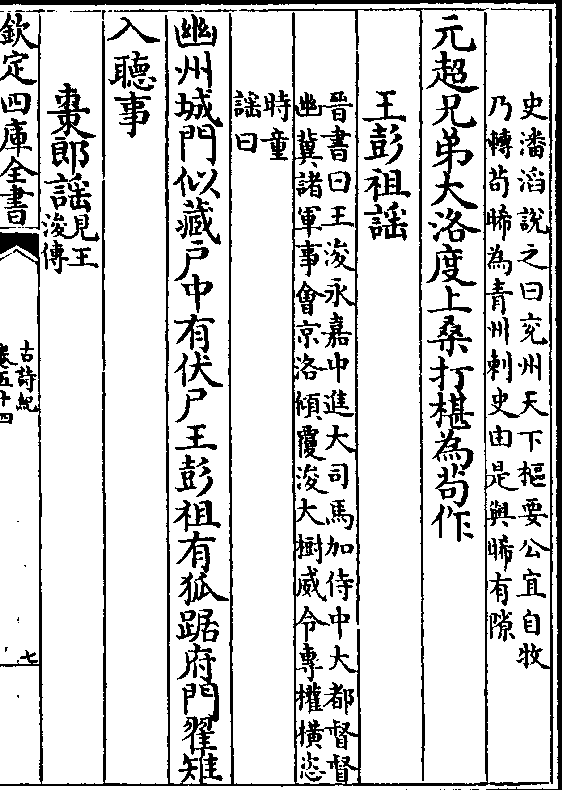 史潘滔說之曰兖州天下樞要公宜自牧
乃轉茍晞為青州刺史由是與晞有隙
元超兄弟大洛度上桑打椹為茍作
王彭祖謡
晉書曰王浚永嘉中進大司馬加侍中大都督督
幽冀諸軍事會京洛傾覆浚大樹威令專權橫恣
時童
謡曰
幽州城門似藏戸中有伏尸王彭祖有狐踞府門翟雉
入聽事
棗郎謡見王
浚傳
欽定四庫全書
古詩紀
卷五十四
七